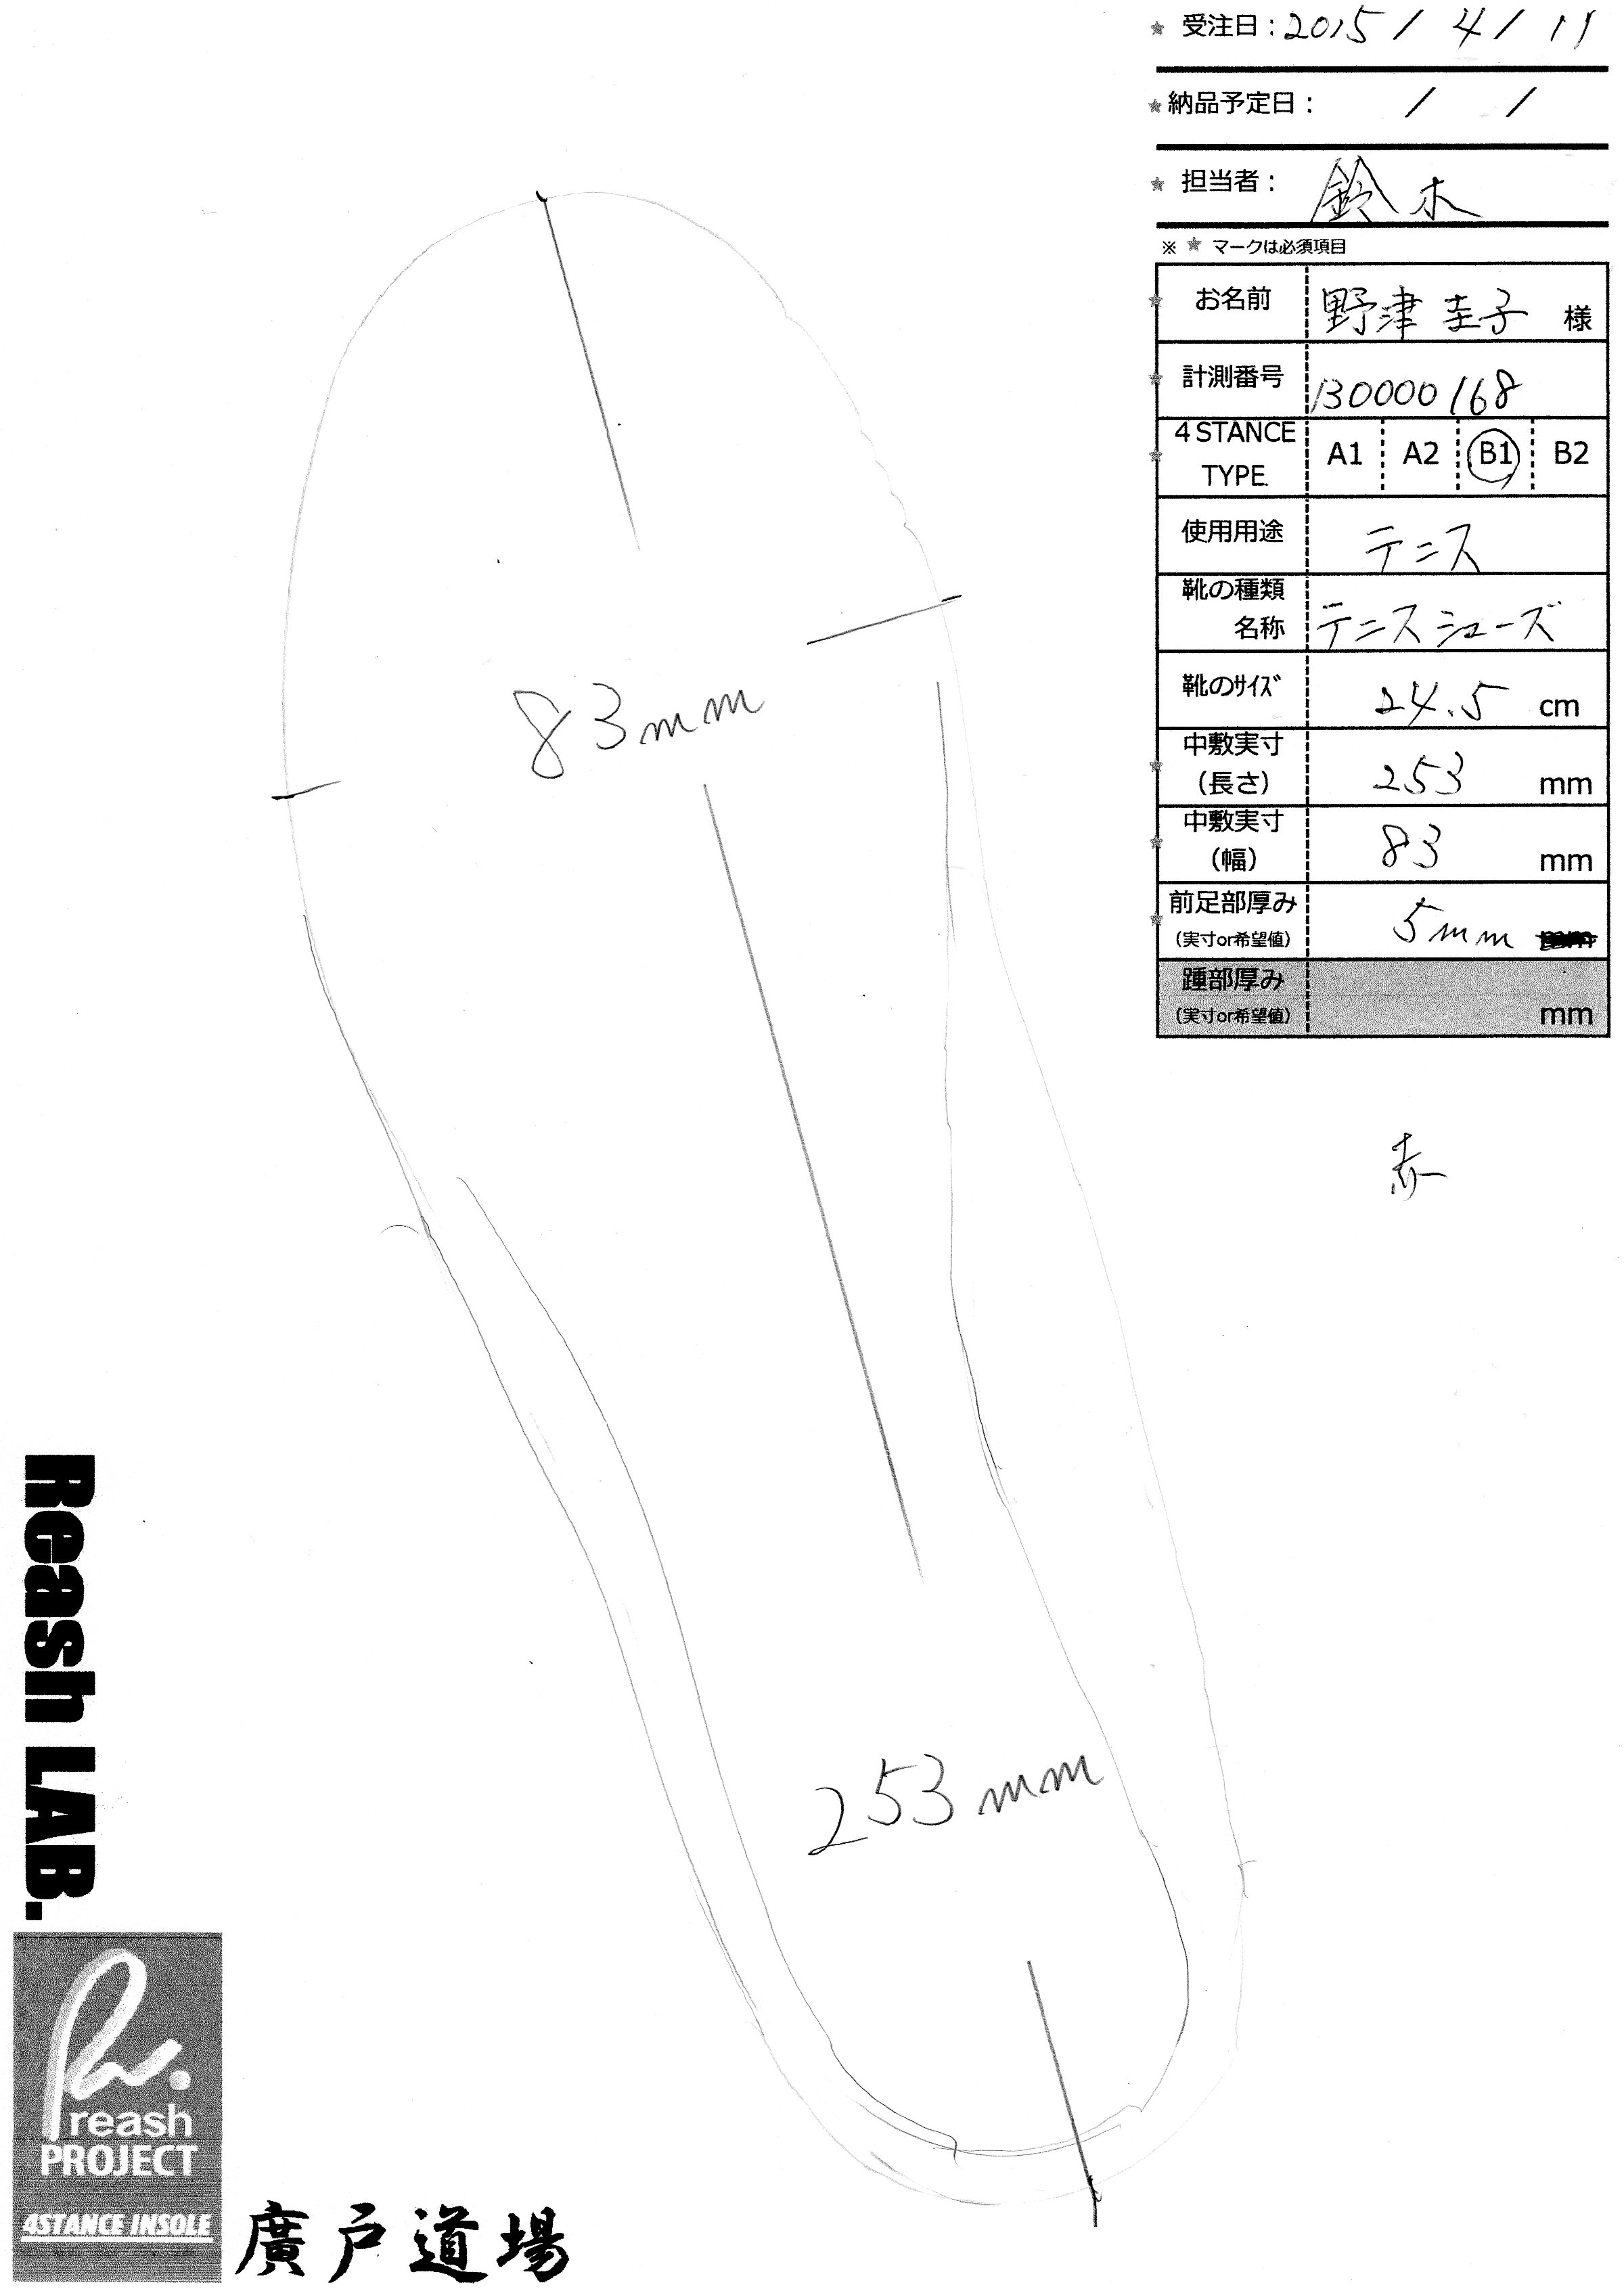 ★ 受注日：2015 / 4 / 11
★ 納品予定日： / /
★ 担当者： 鈴木
※ ★ マークは必須項目
★ お名前 野津 圭子 様
★ 計測番号 130000168
★ 4 STANCE TYPE A1 A2 B1 B2
使用用途 テニス
靴の種類 名称 テニスシューズ
靴のサイズ 24.5 cm
★ 中敷実寸（長さ） 253 mm
★ 中敷実寸（幅） 83 mm
★ 前足部厚み（実寸or希望値） 5mm
踵部厚み（実寸or希望値） mm
赤
83mm
253mm
Reash LAB.
reash
PROJECT
4STANCE INSOLE
廣戸道場